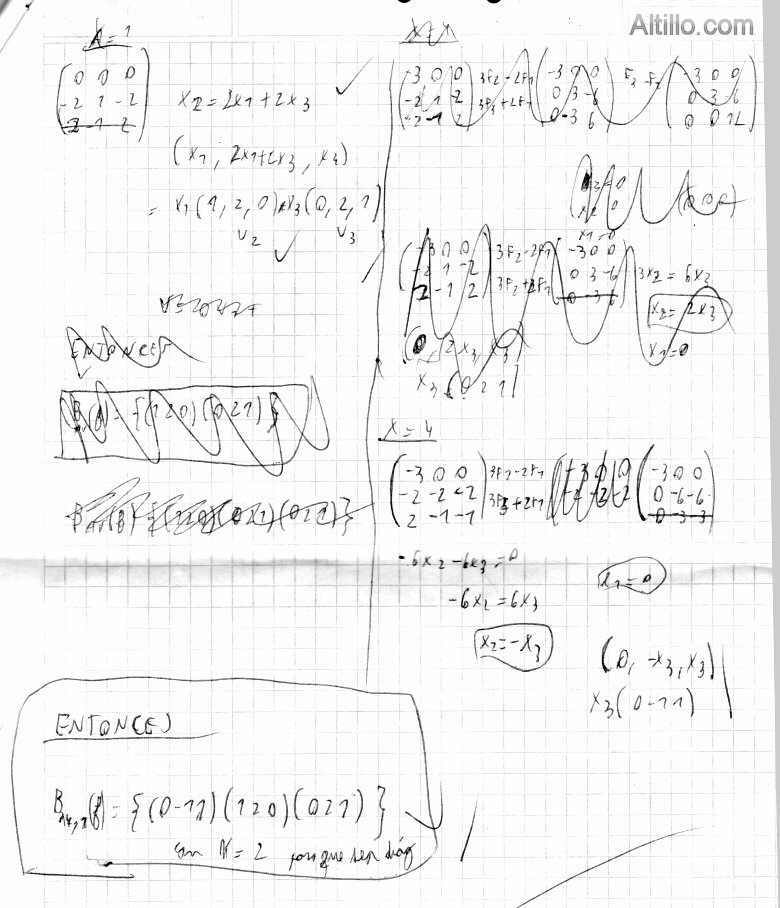 Altillo.com
λ=1
(0 0 0
-2 1 -2
2 -1 2)
x2 = 2x1 + 2x3
(x1, 2x1+2x3, x3)
= x1(1,2,0) + x3(0,2,1)
v2 v3
ENTONCES
B(A) = {(120)(021)}
(-3 0 0
-2 1 -2
-2 -1 2) 3F2-2F1
3F3+2F1 (-3 0 0
0 3 -6
0 -3 6) F3-F2 (-3 0 0
0 3 6
0 0 12)
x2=0
x1=0
(-3 0 0
-2 1 -2
2 -1 2) 3F2-2F1
3F2+2F1 (-3 0 0
0 3 -6
0 -3 6) 3x2 = 6x3
x2 = 2x3
x1=0
(0, 2x3, x3)
x3(0 2 1)
λ=4
(-3 0 0
-2 -2 -2
2 -1 -1) 3F2-2F1
3F3+2F1 (-3 0 0
-2 -2 -2 (-3 0 0
0 -6 -6
0 -3 -3)
-6x2 -6x3=0
-6x2 = 6x3
x2=-x3
x1=0
(0, -x3, x3)
x3(0-11)
ENTONCES
B = {(0-11)(120)(021)}
con K=2 porque sea diag